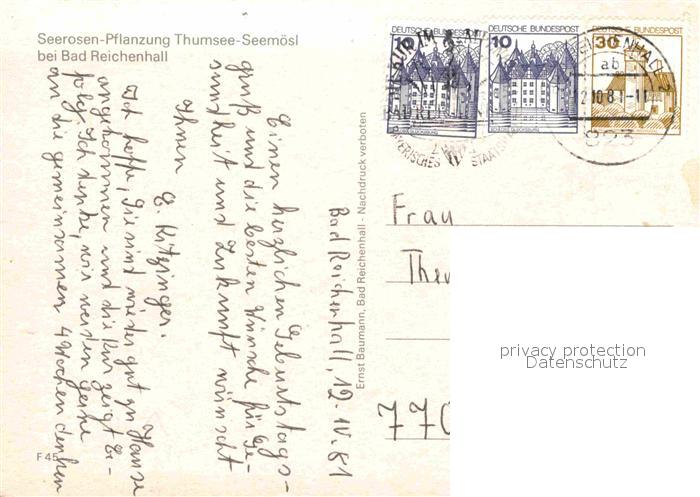 Seerosen-Pflanzung Thumsee-Seemösl
bei Bad Reichenhall
Bad Reichenhall, 12.IV.81
Einen herzlichen Geburtstags-
gruß und die besten Wünsche für Ge-
sundheit und Zukunft wünscht
Ihnen
E. Kitzinger.
Ich hoffe, Sie sind wieder gut zu Hause
angekommen und die Kur zeigt Er-
folg. Ich denke, wir werden gerne
an die gemeinsamen 4 Wochen denken
F 45
Ernst Baumann, Bad Reichenhall - Nachdruck verboten
DEUTSCHE BUNDESPOST
10
DEUTSCHE BUNDESPOST
10
DEUTSCHE BUNDESPOST
30
BAYERISCHES STAATS
ab
823
Frau
The
770
privacy protection
Datenschutz